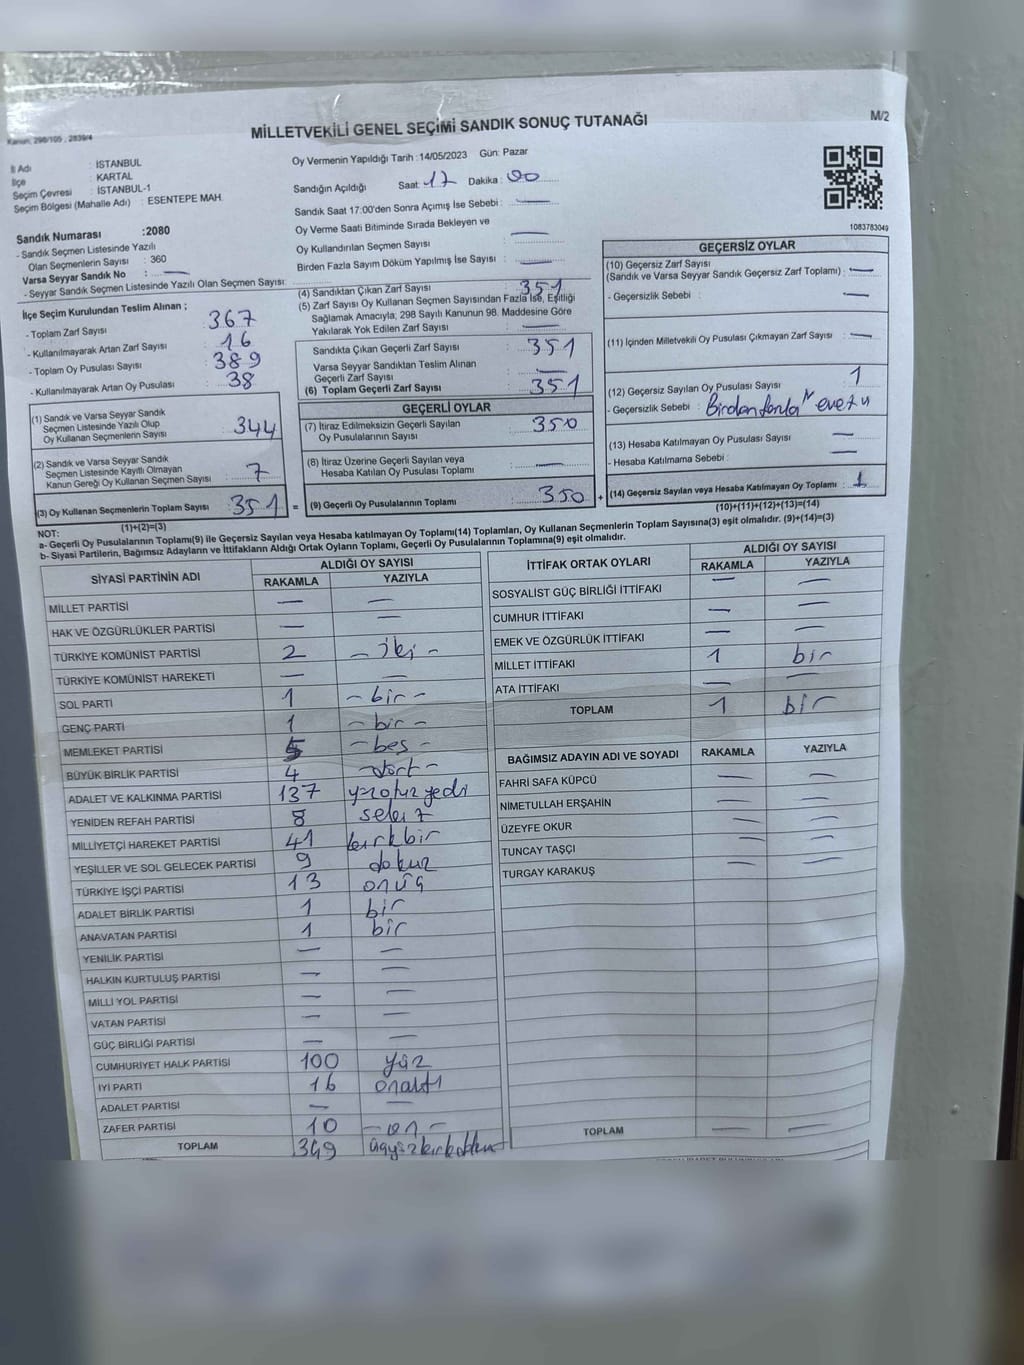 Kanun, 298/105 , 2839/4
MİLLETVEKİLİ GENEL SEÇİMİ SANDIK SONUÇ TUTANAĞI
M/2
İl Adı : İSTANBUL
İlçe : KARTAL
Seçim Çevresi : İSTANBUL-1
Seçim Bölgesi (Mahalle Adı) : ESENTEPE MAH.
Sandık Numarası :2080
- Sandık Seçmen Listesinde Yazılı
Olan Seçmenlerin Sayısı : 360
Varsa Seyyar Sandık No : —
- Seyyar Sandık Seçmen Listesinde Yazılı Olan Seçmen Sayısı:
İlçe Seçim Kurulundan Teslim Alınan ;
- Toplam Zarf Sayısı : 367
- Kullanılmayarak Artan Zarf Sayısı : 16
- Toplam Oy Pusulası Sayısı : 389
- Kullanılmayarak Artan Oy Pusulası : 38
(1) Sandık ve Varsa Seyyar Sandık
Seçmen Listesinde Yazılı Olup
Oy Kullanan Seçmenlerin Sayısı : 344
(2) Sandık ve Varsa Seyyar Sandık
Seçmen Listesinde Kayıtlı Olmayan
Kanun Gereği Oy Kullanan Seçmen Sayısı : 7
(3) Oy Kullanan Seçmenlerin Toplam Sayısı : 351
(1)+(2)=(3)
Oy Vermenin Yapıldığı Tarih : 14/05/2023 Gün: Pazar
Sandığın Açıldığı Saat: 17 Dakika : 00
Sandık Saat 17:00'den Sonra Açılmış İse Sebebi : —
Oy Verme Saati Bitiminde Sırada Bekleyen ve
Oy Kullandırılan Seçmen Sayısı : —
Birden Fazla Sayım Döküm Yapılmış İse Sayısı : —
(4) Sandıktan Çıkan Zarf Sayısı : 351
(5) Zarf Sayısı Oy Kullanan Seçmen Sayısından Fazla İse, Eşitliği
Sağlamak Amacıyla; 298 Sayılı Kanunun 98. Maddesine Göre
Yakılarak Yok Edilen Zarf Sayısı : —
Sandıkta Çıkan Geçerli Zarf Sayısı : 351
Varsa Seyyar Sandıktan Teslim Alınan
Geçerli Zarf Sayısı : —
(6) Toplam Geçerli Zarf Sayısı : 351
GEÇERLİ OYLAR
(7) İtiraz Edilmeksizin Geçerli Sayılan
Oy Pusulalarının Sayısı : 350
(8) İtiraz Üzerine Geçerli Sayılan veya
Hesaba Katılan Oy Pusulası Toplamı : —
= (9) Geçerli Oy Pusulalarının Toplamı : 350
1083783049
GEÇERSİZ OYLAR
(10) Geçersiz Zarf Sayısı
(Sandık ve Varsa Seyyar Sandık Geçersiz Zarf Toplamı) : —
- Geçersizlik Sebebi : —
(11) İçinden Milletvekili Oy Pusulası Çıkmayan Zarf Sayısı : —
(12) Geçersiz Sayılan Oy Pusulası Sayısı : 1
- Geçersizlik Sebebi : Birden fazla
(13) Hesaba Katılmayan Oy Pusulası Sayısı : —
- Hesaba Katılmama Sebebi : —
+ (14) Geçersiz Sayılan veya Hesaba Katılmayan Oy Toplamı : 1
(10)+(11)+(12)+(13)=(14)
NOT:
a- Geçerli Oy Pusulalarının Toplamı(9) ile Geçersiz Sayılan veya Hesaba katılmayan Oy Toplamı(14) Toplamları, Oy Kullanan Seçmenlerin Toplam Sayısına(3) eşit olmalıdır. (9)+(14)=(3)
b- Siyasi Partilerin, Bağımsız Adayların ve İttifakların Aldığı Ortak Oyların Toplamı, Geçerli Oy Pusulalarının Toplamına(9) eşit olmalıdır.
SİYASİ PARTİNİN ADI ALDIĞI OY SAYISI
RAKAMLA YAZIYLA
MİLLET PARTİSİ — —
HAK VE ÖZGÜRLÜKLER PARTİSİ — —
TÜRKİYE KOMÜNİST PARTİSİ 2 - iki -
TÜRKİYE KOMÜNİST HAREKETİ — —
SOL PARTİ 1 - bir -
GENÇ PARTİ 1 - bir -
MEMLEKET PARTİSİ 5 - beş -
BÜYÜK BİRLİK PARTİSİ 4 - dört -
ADALET VE KALKINMA PARTİSİ 137 yüzotuzyedi
YENİDEN REFAH PARTİSİ 8 sekiz
MİLLİYETÇİ HAREKET PARTİSİ 41 kırkbir
YEŞİLLER VE SOL GELECEK PARTİSİ 9 dokuz
TÜRKİYE İŞÇİ PARTİSİ 13 onüç
ADALET BİRLİK PARTİSİ 1 bir
ANAVATAN PARTİSİ 1 bir
YENİLİK PARTİSİ — —
HALKIN KURTULUŞ PARTİSİ — —
MİLLİ YOL PARTİSİ — —
VATAN PARTİSİ — —
GÜÇ BİRLİĞİ PARTİSİ — —
CUMHURİYET HALK PARTİSİ 100 yüz
İYİ PARTİ 16 onaltı
ADALET PARTİSİ — —
ZAFER PARTİSİ 10 - on -
TOPLAM 349
İTTİFAK ORTAK OYLARI ALDIĞI OY SAYISI
RAKAMLA YAZIYLA
SOSYALİST GÜÇ BİRLİĞİ İTTİFAKI — —
CUMHUR İTTİFAKI — —
EMEK VE ÖZGÜRLÜK İTTİFAKI — —
MİLLET İTTİFAKI 1 bir
ATA İTTİFAKI — —
TOPLAM 1 bir
BAĞIMSIZ ADAYIN ADI VE SOYADI RAKAMLA YAZIYLA
FAHRİ SAFA KÜPCÜ — —
NİMETULLAH ERŞAHİN — —
ÜZEYFE OKUR — —
TUNCAY TAŞÇI — —
TURGAY KARAKUŞ — —
TOPLAM — —